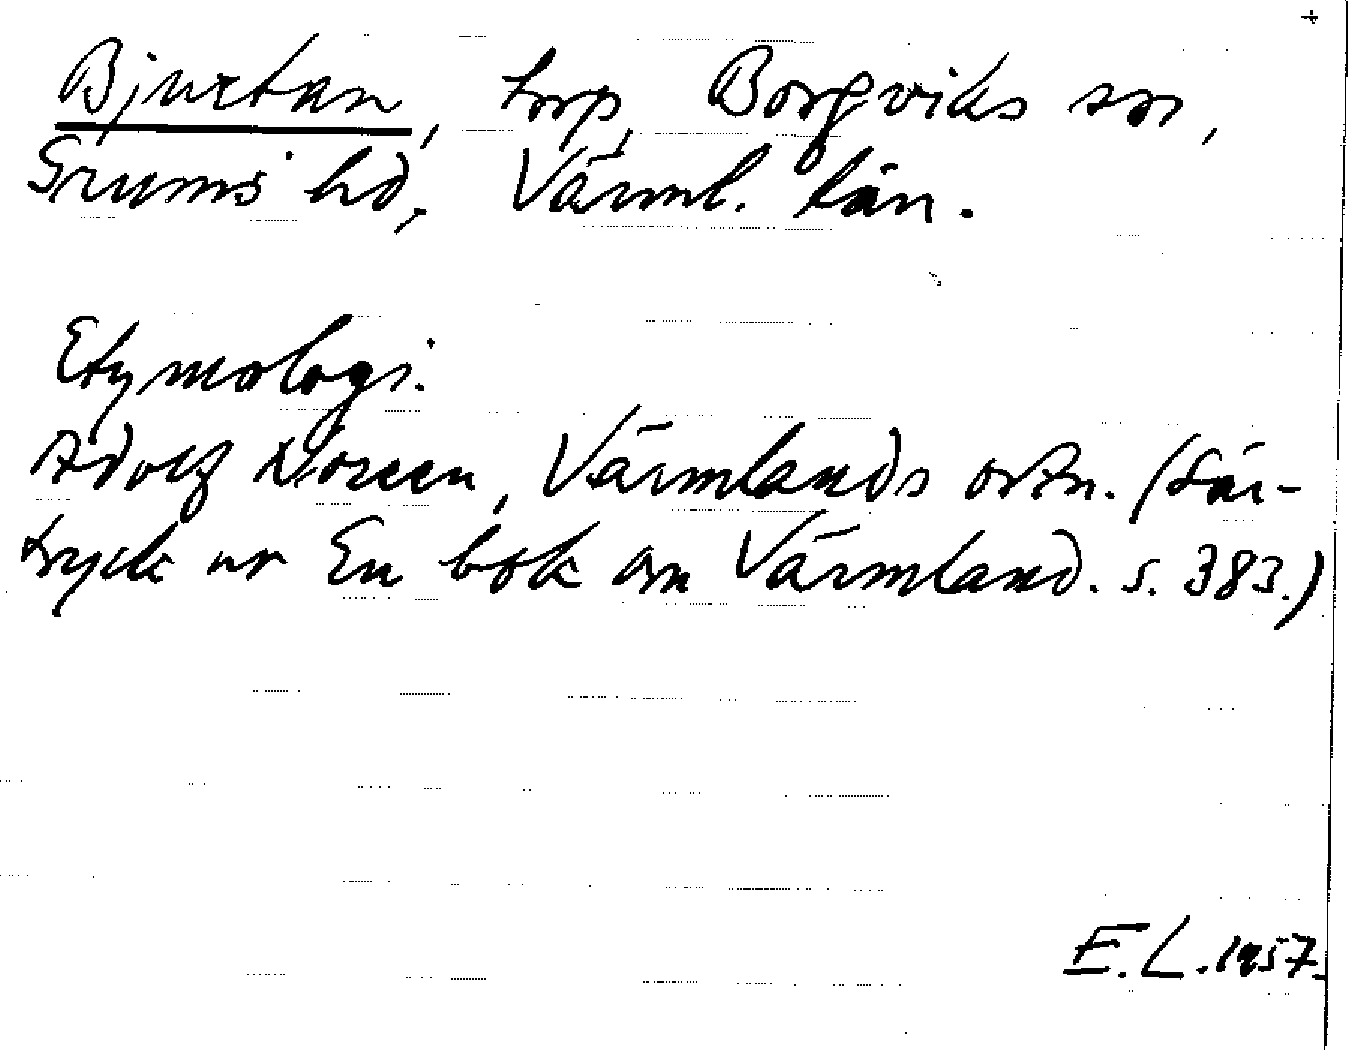 Bjurtan, torp, Borgviks sn,
Grums hd, Värml. län.
Etymologi.
Adolf Noreen, Värmlands ortn. (Sär-
tryck ur En bok om Värmland. s. 383.)
E. L. 1957.